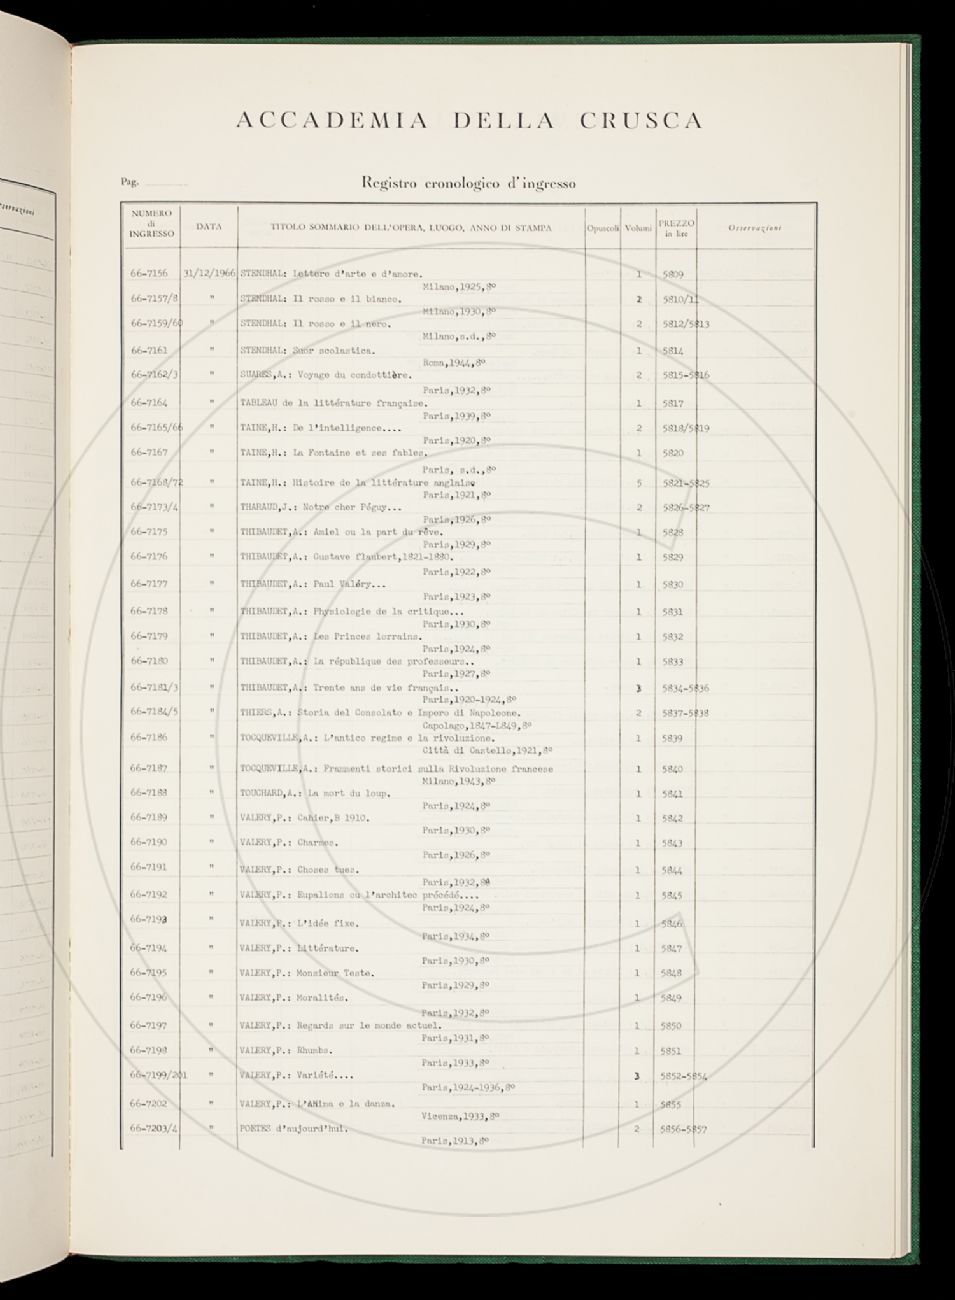 ACCADEMIA DELLA CRUSCA
Pag.
Registro cronologico d'ingresso
NUMERO di INGRESSO DATA TITOLO SOMMARIO DELL'OPERA, LUOGO, ANNO DI STAMPA Opuscoli Volumi PREZZO in lire Osservazioni
66-7156 31/12/1966 STENDHAL: Lettere d'arte e d'amore. 1 5809
Milano,1925,8º
66-7157/8 " STENDHAL: Il rosso e il bianco. 2 5810/11
Milano,1930,8º
66-7159/60 " STENDHAL: Il rosso e il nero. 2 5812/5813
Milano,s.d.,8º
66-7161 " STENDHAL: Suor scolastica. 1 5814
Roma,1944,8º
66-7162/3 " SUARES,A.: Voyage du condottière. 2 5815-5816
Paris,1932,8º
66-7164 " TABLEAU de la littérature française. 1 5817
Paris,1939,8º
66-7165/66 " TAINE,H.: De l'intelligence.... 2 5818/5819
Paris,1920,8º
66-7167 " TAINE,H.: La Fontaine et ses fables. 1 5820
Paris, s.d.,8º
66-7168/72 " TAINE,H.: Histoire de la littérature anglaise 5 5821-5825
Paris,1921,8º
66-7173/4 " THARAUD,J.: Notre cher Péguy... 2 5826-5827
Paris,1926,8º
66-7175 " THIBAUDET,A.: Amiel ou la part du rêve. 1 5828
Paris,1929,8º
66-7176 " THIBAUDET,A.: Gustave flaubert,1821-1880. 1 5829
Paris,1922,8º
66-7177 " THIBAUDET,A.: Paul Valéry... 1 5830
Paris,1923,8º
66-7178 " THIBAUDET,A.: Physiologie de la critique... 1 5831
Paris,1930,8º
66-7179 " THIBAUDET,A.: Les Princes lorrains. 1 5832
Paris,1924,8º
66-7180 " THIBAUDET,A.: La république des professeurs.. 1 5833
Paris,1927,8º
66-7181/3 " THIBAUDET,A.: Trente ans de vie français.. 3 5834-5836
Paris,1920-1924,8º
66-7184/5 " THIERS,A.: Storia del Consolato e Impero di Napoleone. 2 5837-5838
Capolago,1847-L849,8º
66-7186 " TOCQUEVILLE,A.: L'antico regime e la rivoluzione. 1 5839
Città di Castello,1921,8º
66-7187 " TOCQUEVILLE,A.: Frammenti storici sulla Rivoluzione francese 1 5840
Milano,1943,8º
66-7188 " TOUCHARD,A.: La mort du loup. 1 5841
Paris,1924,8º
66-7189 " VALERY,P.: Cahier,B 1910. 1 5842
Paris,1930,8º
66-7190 " VALERY,P.: Charmes. 1 5843
Paris,1926,8º
66-7191 " VALERY,P.: Choses tues. 1 5844
Paris,1932,8º
66-7192 " VALERY,P.: Eupalions ou l'architec précédé.... 1 5845
Paris,1924,8º
66-7193 " VALERY,P.: L'idée fixe. 1 5846
Paris,1934,8º
66-7194 " VALERY,P.: Littérature. 1 5847
Paris,1930,8º
66-7195 " VALERY,P.: Monsieur Teste. 1 5848
Paris,1929,8º
66-7196 " VALERY,P.: Moralités. 1 5849
Paris,1932,8º
66-7197 " VALERY,P.: Regards sur le monde actuel. 1 5850
Paris,1931,8º
66-7198 " VALERY,P.: Rhumbs. 1 5851
Paris,1933,8º
66-7199/201 " VALERY,P.: Variété.... 3 5852-5854
Paris,1924-1936,8º
66-7202 " VALERY,P.: L'Anima e la danza. 1 5855
Vicenza,1933,8º
66-7203/4 " POETES d'aujourd'hui. 2 5856-5857
Paris,1913,8º